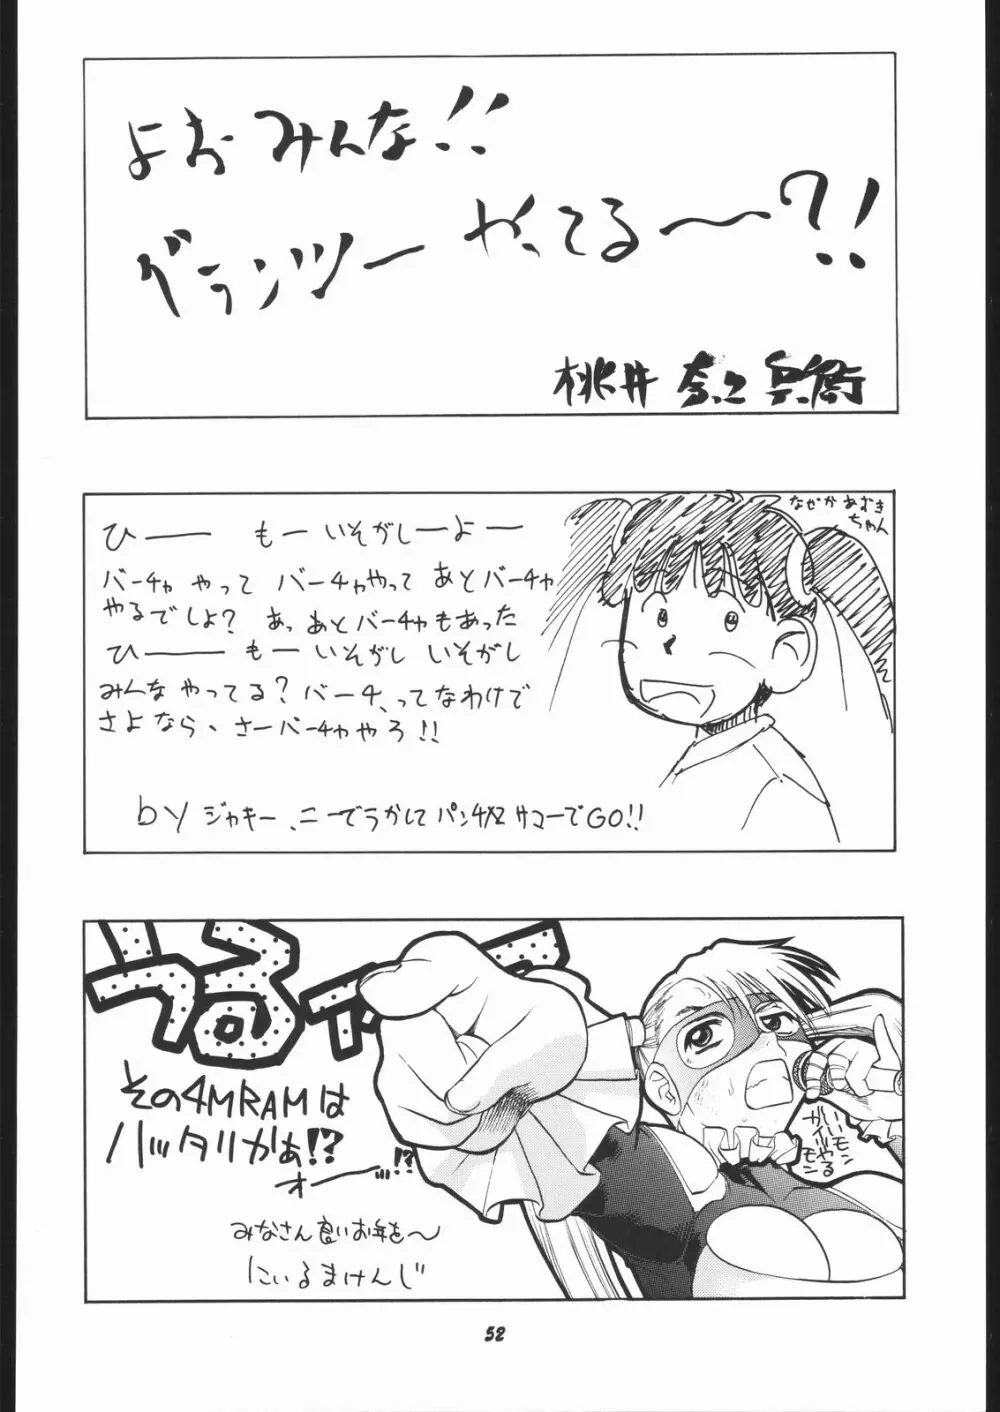 よお みんな!!
グランツー やってる〜?!
桃井 奈々兵衛
なぜか あむき
ちゃん
ひーー もー いそがしーよー
バーチャ やって バーチャやって あとバーチャ
やるでしょ? あっ あとバーチャもあった
ひーー もー いそがし いそがし
みんな やってる? バーチ、ってなわけで
さよなら、さーバーチャやろ!!
by ジャキー、ニーでうかして パンチ サマーでGO!!
その4MRAMは
ハッタリかぁ!?
オー…!?
いいモン
やる
ガイル
モン
みなさん良いお年を〜
にいるまけんじ
52